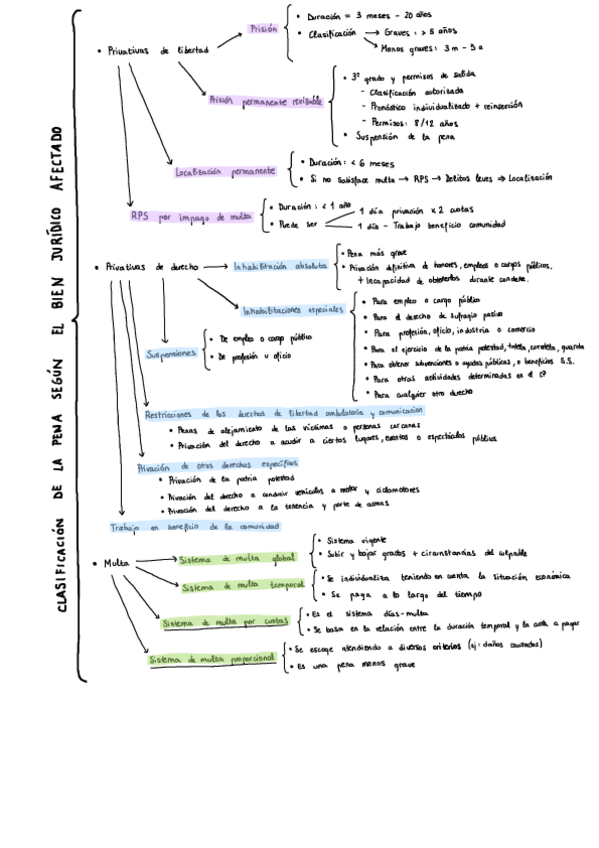 CLASIFICACIÓN DE LA PENA SEGÚN EL BIEN JURÍDICO AFECTADO
• Privativas de libertad
Prisión
• Duración = 3 meses - 20 años
• Clasificación → Graves: > 5 años
Menos graves: 3 m - 5 a
Prisión permanente revisable
• 3º grado y permisos de salida
- Clasificación autorizada
- Pronóstico individualizado + reinserción
- Permisos: 8/12 años
• Suspensión de la pena
Localización permanente
• Duración: < 6 meses
• Si no satisface multa → RPS → Delitos leves → Localización
RPS por impago de multa
• Duración: < 1 año
• Puede ser
1 día privación x 2 cuotas
1 día - Trabajo beneficio comunidad
• Privativas de derecho
Inhabilitación absoluta
• Pena más grave
• Privación definitiva de honores, empleos o cargos públicos.
+ Incapacidad de obtenerlos durante condena.
Inhabilitaciones especiales
• Para empleo o cargo público
• Para el derecho de sufragio pasivo
• Para profesión, oficio, industria o comercio
• Para el ejercicio de la patria potestad, tutela, curatela, guarda
• Para obtener subvenciones o ayudas públicas, o beneficios S.S.
• Para otras actividades determinadas en el CP
• Para cualquier otro derecho
Suspensiones
• De empleo o cargo público
• De profesión u oficio
Restricciones de los derechos de libertad ambulatoria y comunicación
• Penas de alejamiento de las víctimas o personas cercanas
• Privación del derecho a acudir a ciertos lugares, eventos o espectáculos públicos
Privación de otros derechos específicos
• Privación de la patria potestad
• Privación del derecho a conducir vehículos a motor y ciclomotores
• Privación del derecho a la tenencia y porte de armas
Trabajo en beneficio de la comunidad
• Multa
Sistema de multa global
• Sistema vigente
• Subir y bajar grados + circunstancias del culpable
Sistema de multa temporal
• Se individualiza teniendo en cuenta la situación económica
• Se paga a lo largo del tiempo
Sistema de multa por cuotas
• Es el sistema días-multa
• Se basa en la relación entre la duración temporal y la cuota a pagar
Sistema de multa proporcional
• Se escoge atendiendo a diversos criterios (ej: daños causados)
• Es una pena menos grave